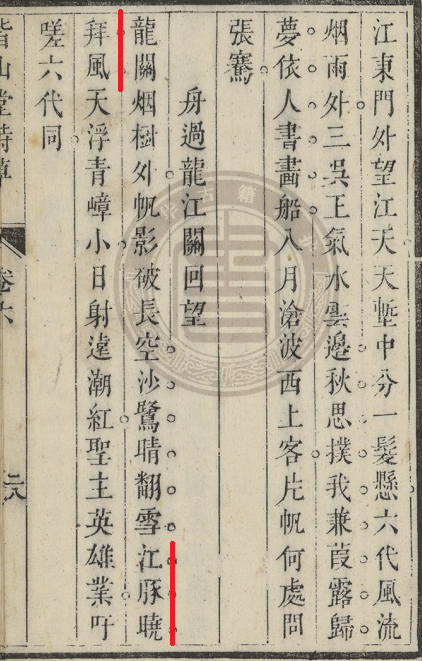 江東門外望江天天塹中分一髮懸六代風流
烟雨外三吳王氣水雲邊秋思撲我蒹葭露歸
夢依人書畵船八月滄波西上客片帆何處問
張騫
舟過龍江關回望
龍關烟樹外帆影破長空沙鷺晴翻雪江豚曉
拜風天浮青嶂小日射遠潮紅聖主英雄業吁
嗟六代同
山堂詩草
卷六
二八